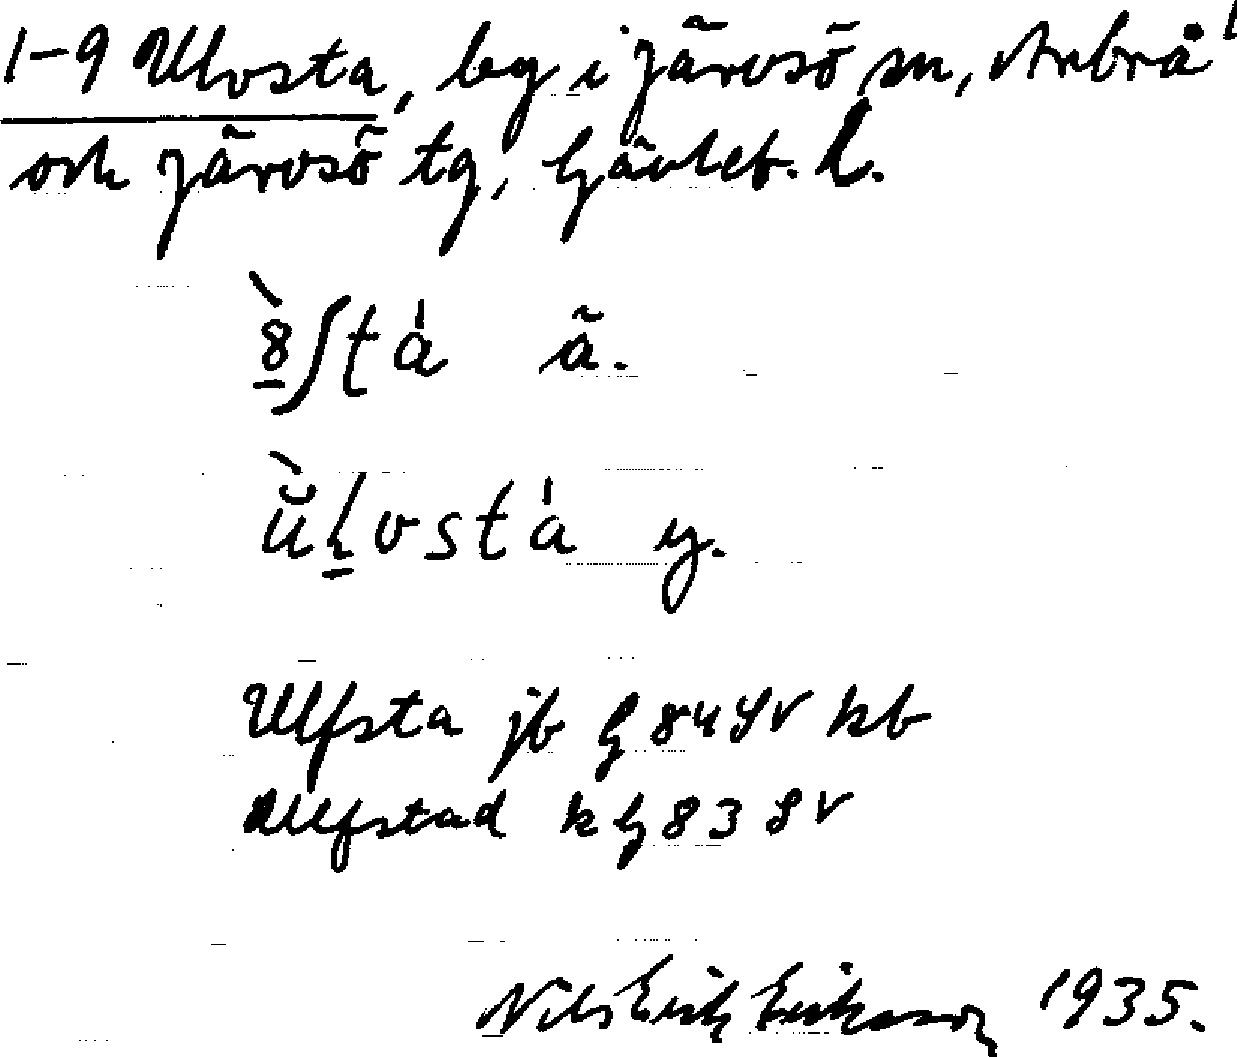 1-9 Ulvsta, by i Järvsö sn, Arbrå
och Järvsö tg, Gävleb. l.
ä.
y.
Ulfsta jb G 84 Sv kb
Ulfstad k G 83 Sv
Nils Erik Eriksson 1935.